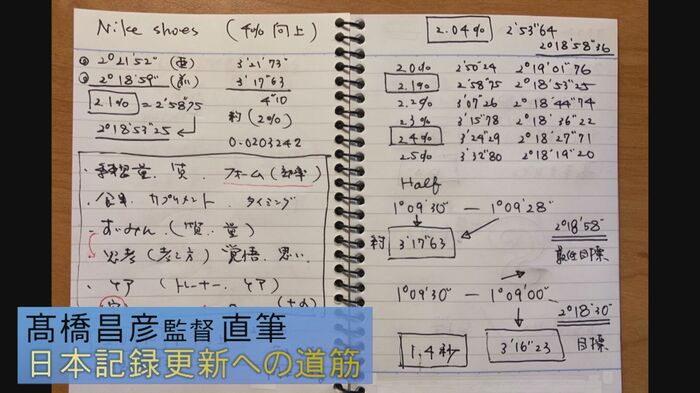 Nike shoes (4%向上)
① 2°21'52" (亜) 3'21"73
② 2°18'59" 3'17"63
4"10
2.1% = 2'58"75
約(2%)
2°18'53"25
0.0203242
・練習量、質、フォーム(効率)
・食事、サプリメント、タイミング
・すいみん、(質、量)
・思考(考え方) 覚悟、思い、
・ケア(トレーナー、ケア)
2.04% 2'53"64
2°18'58"36
2.0% 2'50"24 2°19'01"76
2.1% 2'58"75 2°18'53"25
2.2% 3'07"26 2°18'44"74
2.3% 3'15"78 2°18'36"22
2.4% 3'24"29 2°18'27"71
2.5% 3'32"80 2°18'19"20
Half
1°09'30" — 1°09'28"
2°18'58"
約 3'17"63
最低目標
1°09'30" — 1°09'00"
2°18'30"
1.4秒 3'16"23 目標
髙橋昌彦監督 直筆
日本記録更新への道筋